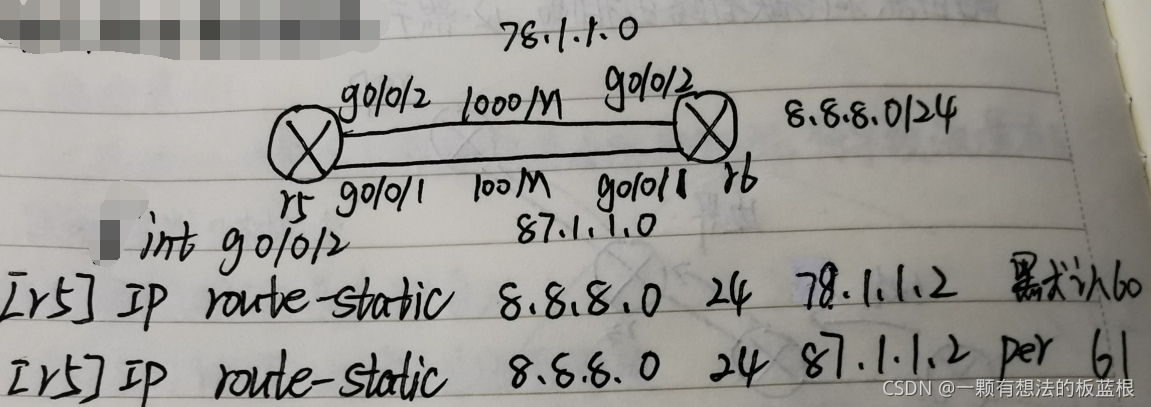 78.1.1.0
g0/0/2 1000M g0/0/2
8.8.8.0/24
r5 g0/0/1 100M g0/0/1 r6
87.1.1.0
int g0/0/2
[r5] IP route-static 8.8.8.0 24 78.1.1.2 默认60
[r5] IP route-static 8.8.8.0 24 87.1.1.2 per 61
CSDN @一颗有想法的板蓝根